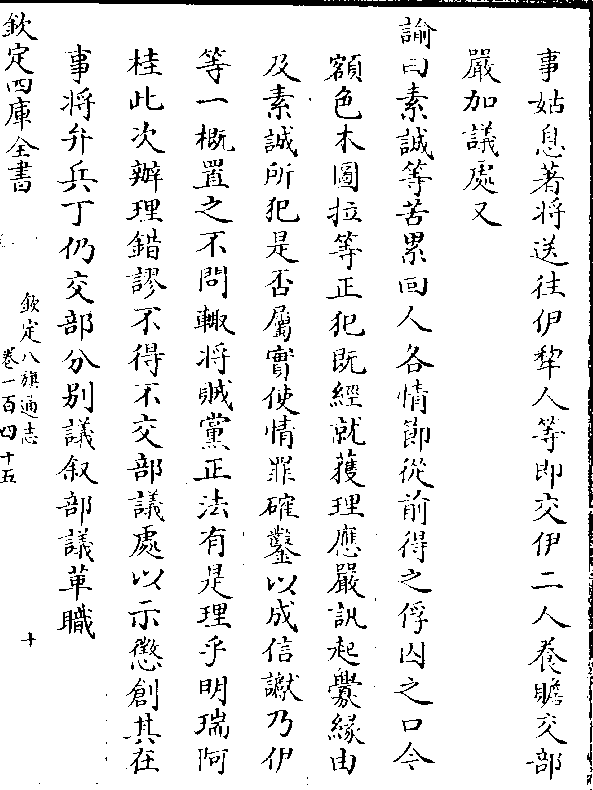 事姑息著將送往伊犂人等即交伊二人養贍交部
嚴加議處又
諭曰素誠等苦累回人各情節從前得之俘囚之口今
額色木圖拉等正犯既經就獲理應嚴訊起釁緣由
及素誠所犯是否屬實使情罪確鑿以成信讞乃伊
等一概置之不問輙將賊黨正法有是理乎明瑞阿
桂此次辦理錯謬不得不交部議處以示懲創其在
事將弁兵丁仍交部分别議叙部議革職
欽定四庫全書
欽定八旗通志
卷一百四十五
十